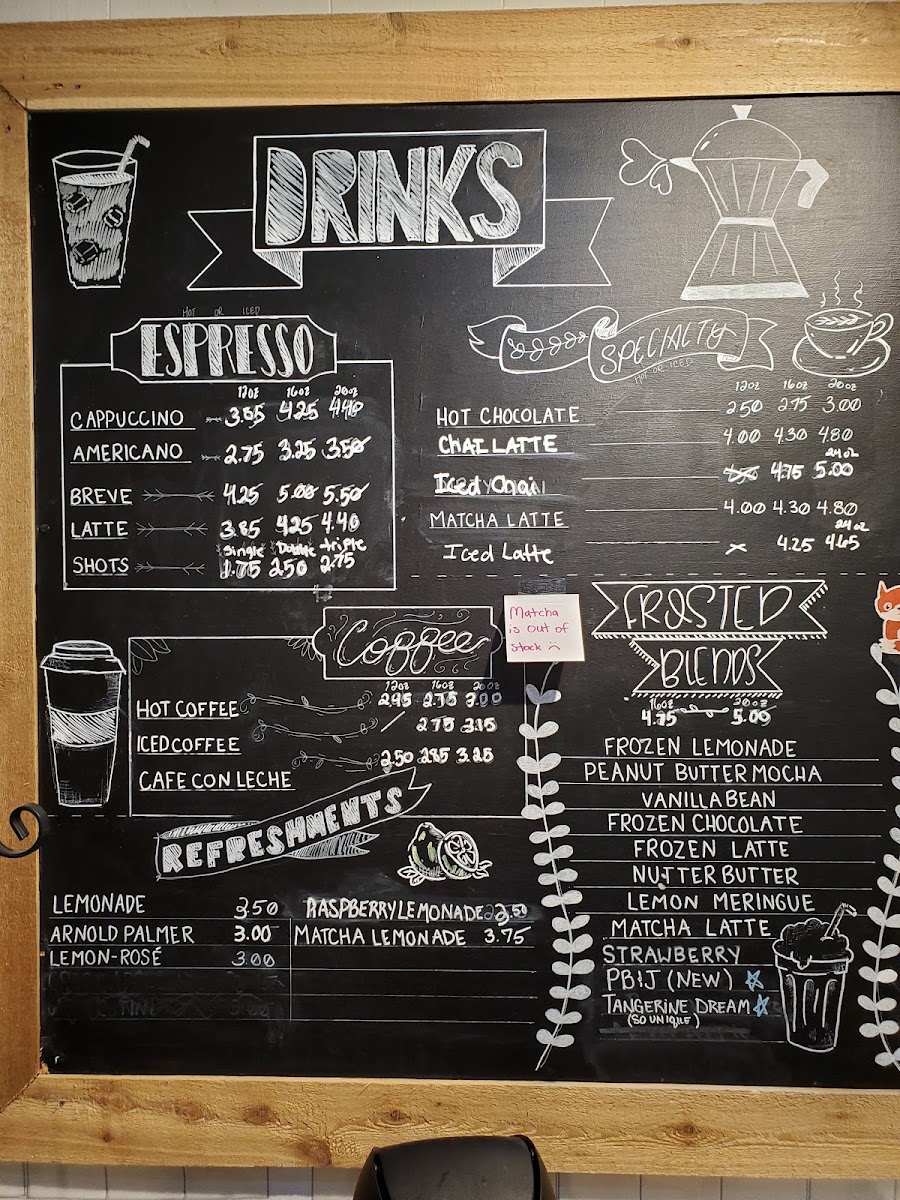 DRINKS
HOT OR ICED
ESPRESSO
12oz 16oz 20oz
CAPPUCCINO 3.85 4.25 4.40
AMERICANO 2.75 3.25 3.50
BREVE 4.25 5.00 5.50
LATTE 3.85 4.25 4.40
Single Double triple
SHOTS 1.75 2.50 2.75
SPECIALTY
HOT OR ICED
12oz 16oz 20oz
HOT CHOCOLATE 2.50 2.75 3.00
CHAI LATTE 4.00 4.30 4.80
24oz
Iced Chai 4.75 5.00
MATCHA LATTE 4.00 4.30 4.80
24oz
Iced Latte x 4.25 4.65
Matcha
is out of
stock :(
Coffee
12oz 16oz 20oz
HOT COFFEE 2.45 2.75 3.00
ICED COFFEE / 2.75 3.15
CAFE CON LECHE 2.50 2.85 3.25
REFRESHMENTS
LEMONADE 3.50
ARNOLD PALMER 3.00
LEMON-ROSÉ 3.00
RASPBERRY LEMONADE 3.50
MATCHA LEMONADE 3.75
FROSTED
BLENDS
16oz 20oz
4.75 5.00
FROZEN LEMONADE
PEANUT BUTTER MOCHA
VANILLA BEAN
FROZEN CHOCOLATE
FROZEN LATTE
NUTTER BUTTER
LEMON MERINGUE
MATCHA LATTE
STRAWBERRY
PB&J (NEW)
TANGERINE DREAM
(SO UNIQUE)